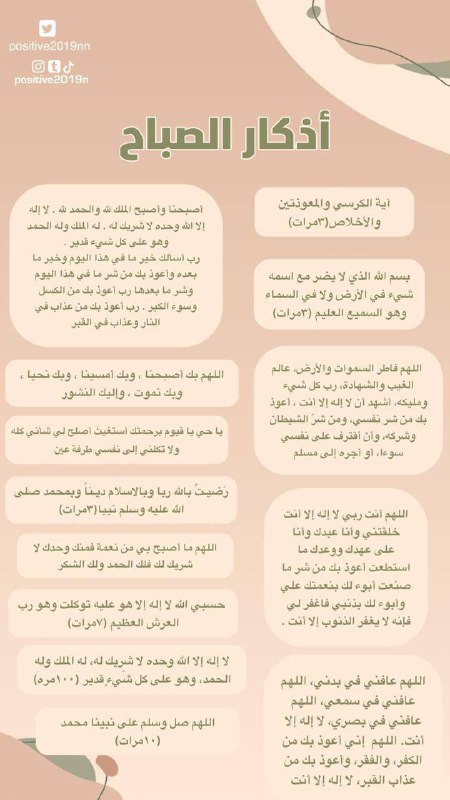 positive2019nn
positive2019n
أذكار الصباح
أية الكرسي والمعوذتين
والأخلاص(٣مرات)
بسم الله الذي لا يضر مع اسمه
شيء في الأرض ولا في السماء
وهو السميع العليم (٣مرات)
اللهم فاطر السموات والأرض، عالم
الغيب والشهادة، رب كل شيء
ومليكه، أشهد أن لا إله إلا أنت ، أعوذ
بك من شر نفسي، ومن شرّ الشيطان
وشركه، وأن أقترف على نفسي
سوءا، أو أجره إلى مسلم
اللهم أنت ربي لا إله إلا أنت
خلقتني وأنا عبدك وأنا
على عهدك ووعدك ما
استطعت أعوذ بك من شر ما
صنعت أبوء لك بنعمتك علي
وأبوء لك بذنبي فاغفر لي
فإنه لا يغفر الذنوب إلا أنت .
اللهم عافني في بدني، اللهم
عافني في سمعي، اللهم
عافني في بصري، لا إله إلا
أنت. اللهم إني أعوذ بك من
الكفر، والفقر، وأعوذ بك من
عذاب القبر، لا إله إلا أنت
أصبحنا وأصبح الملك لله والحمد لله . لا إله
إلا الله وحده لا شريك له . له الملك وله الحمد
وهو على كل شيء قدير .
رب أسالك خير ما في هذا اليوم وخير ما
بعده وأعوذ بك من شر ما في هذا اليوم
وشر ما بعدها رب أعوذ بك من الكسل
وسوء الكبر . رب أعوذ بك من عذاب في
النار وعذاب في القبر
اللهم بك أصبحنا ، وبك أمسينا ، وبك نحيا ،
وبك نموت ، وإليك النشور
يا حي يا قيوم برحمتك أستغيث أصلح لي شاني كله
ولا تكلني إلى نفسي طرفة عين
رَضيتُ بالله ربا وبالاسلام ديناً وبمحمد صلى
الله عليه وسلم نبيا(٣مرات)
اللهم ما أصبح بي من نعمة فمنك وحدك لا
شريك لك فلك الحمد ولك الشكر
حسبي الله لا إله إلا هو عليه توكلت وهو رب
العرش العظيم (٧مرات)
لا إله إلا الله وحده لا شريك له، له الملك وله
الحمد، وهو على كل شيء قدير (١٠٠مره)
اللهم صل وسلم على نبينا محمد
(١٠مرات)